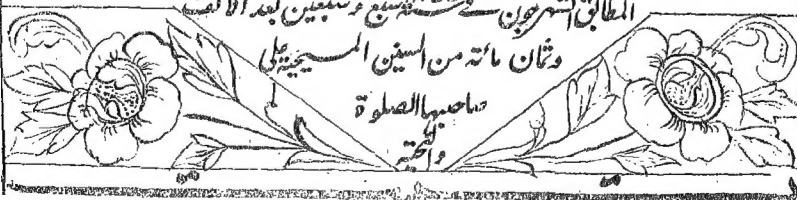 المطابق لشهر جون سنة سبع و سبعين بعد الالف
وثمان مائته من السنين المسيحية على
صاحبها الصلوة
والتحية